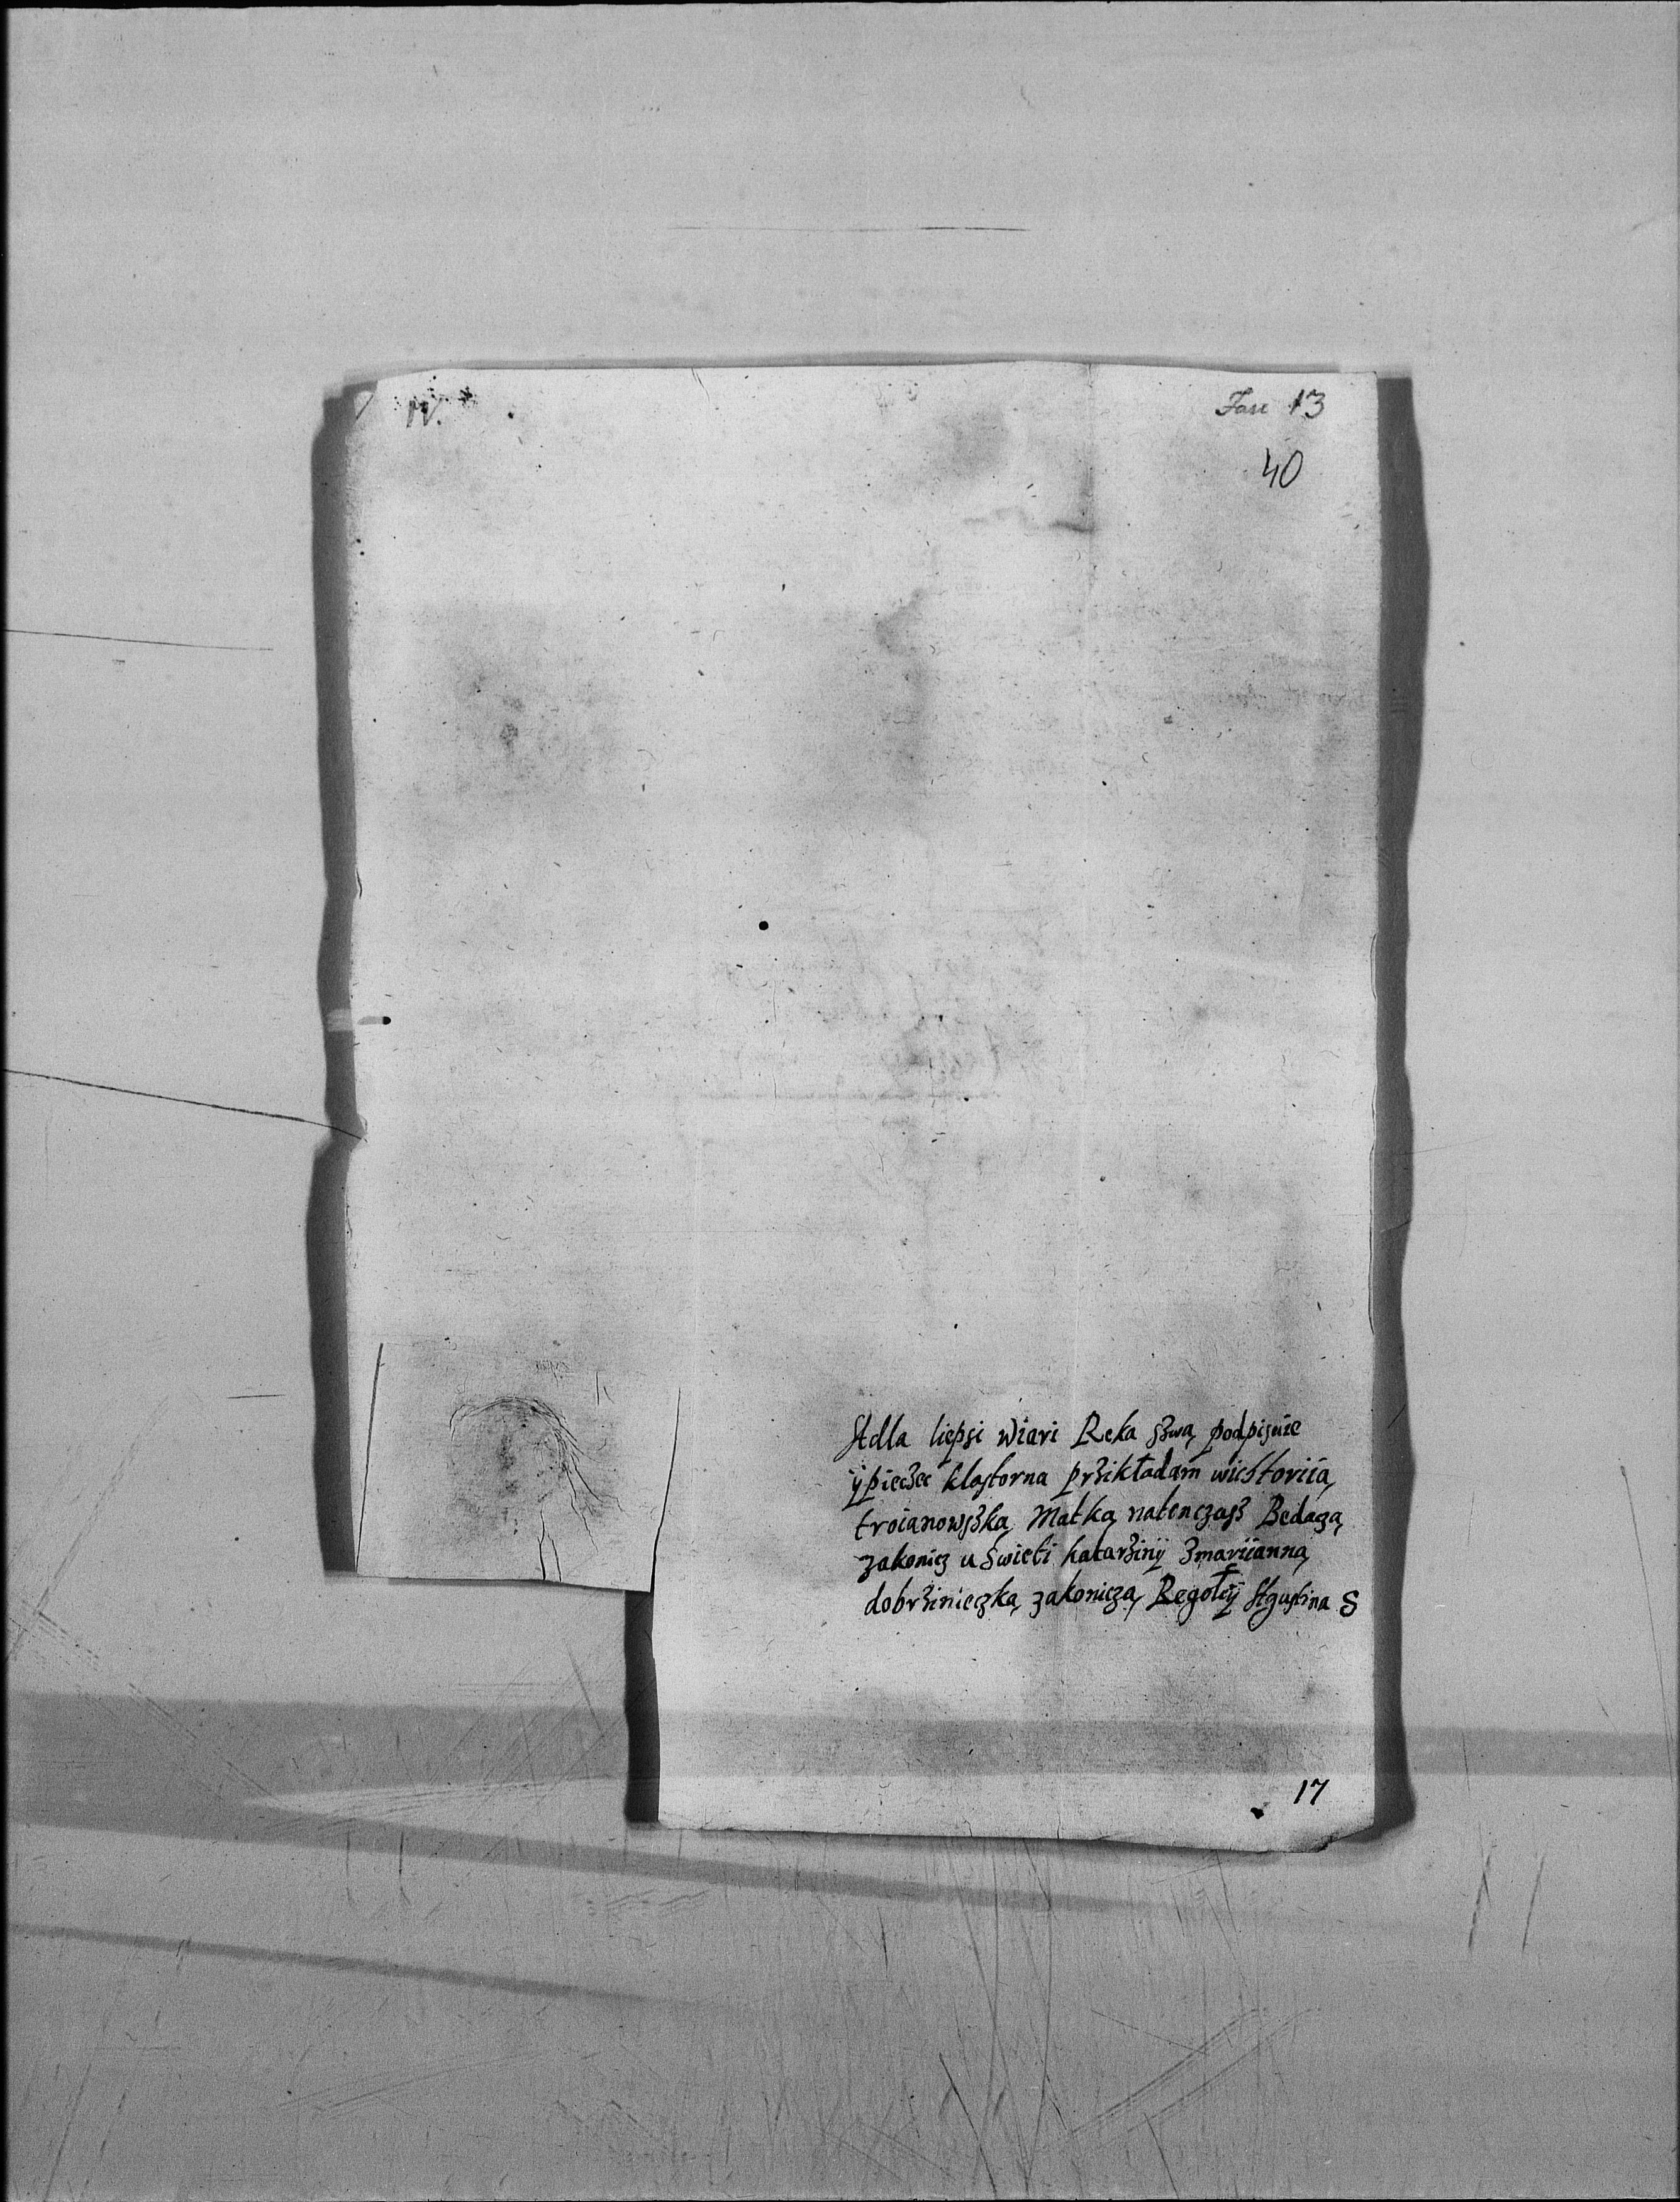 IV.
Fasc 13
40
Adla liepsi wiari Reka sʒwą podpisuie
ÿ pieczec klastorna prʒikładam wicstoriią
troianowsʒką Matką natenczasʒ Bedaczą
zakonicz u Swieti katarʒinÿ ʒmariianną
dobrʒinieczką zakoniczą Regołÿ Agustina S
17